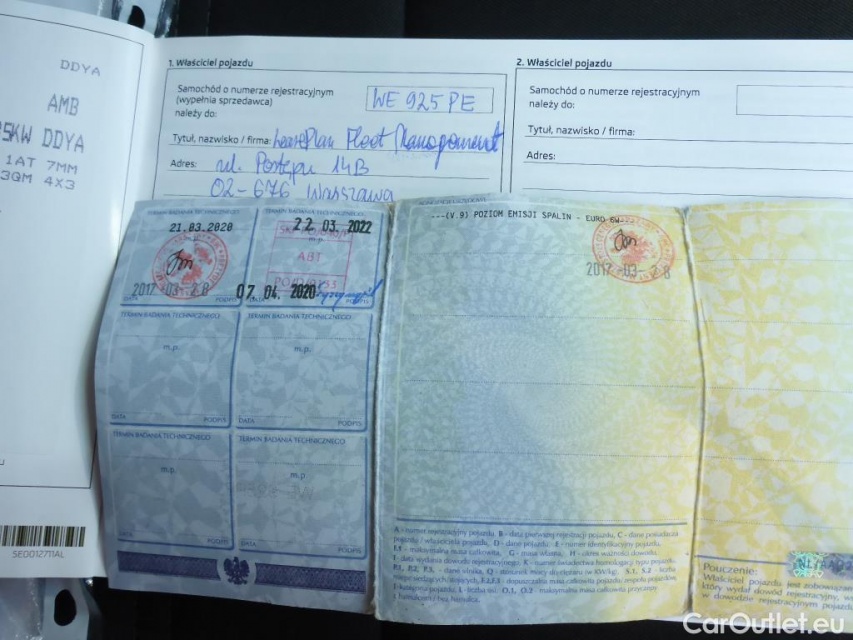 DDYA
AMB
5KW DDYA
1AT 7MM
3QM 4X3
SE0012711AL
1. Właściciel pojazdu
Samochód o numerze rejestracyjnym
(wypełnia sprzedawca)
należy do:
WE 925PE
Tytuł, nazwisko / firma: LeasePlan Fleet Management
Adres: ul. Postępu 14B
02-676 Warszawa
2. Właściciel pojazdu
Samochód o numerze rejestracyjnym
należy do:
Tytuł, nazwisko / firma:
Adres:
TERMIN BADANIA TECHNICZNEGO
21.03.2020
2017 -03- 28
DATA
TERMIN BADANIA TECHNICZNEGO
22. 03. 2022
m.p.
ABT
07. 04. 2020
PODPIS
TERMIN BADANIA TECHNICZNEGO
m.p.
DATA PODPIS
TERMIN BADANIA TECHNICZNEGO
m.p.
DATA PODPIS
TERMIN BADANIA TECHNICZNEGO
m.p.
DATA PODPIS
TERMIN BADANIA TECHNICZNEGO
m.p.
DATA PODPIS
---(V.9) POZIOM EMISJI SPALIN - EURO 6W---
2017 -03- 28
A - numer rejestracyjny pojazdu, B - data pierwszej rejestracji pojazdu, C - dane posiadacza
pojazdu / właściciela pojazdu, D - dane pojazdu, E - numer identyfikacyjny pojazdu,
F.1 - maksymalna masa całkowita, G - masa własna, H - okres ważności dowodu,
I - data wydania dowodu rejestracyjnego, K - numer świadectwa homologacji typu pojazdu,
P.1, P.2, P.3, - dane silnika, Q - stosunek mocy do ciężaru (w KW/kg), S.1, S.2 - liczba
Pouczenie:
Właściciel pojazdu jest zobowiązan
który wydał dowód rejestracyjny, ws
w dowodzie rejestracyjnym pojazdu
CarOutlet.eu